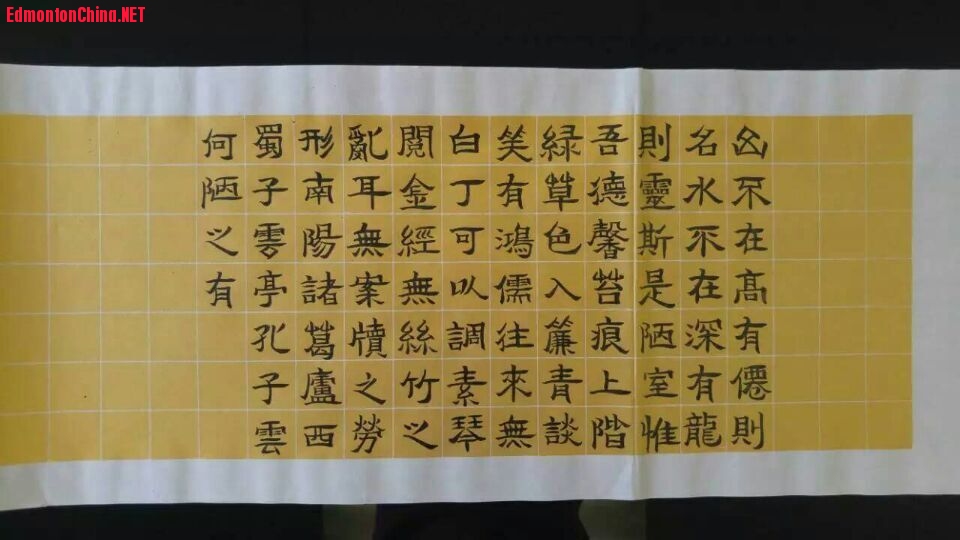 EdmontonChina.NET
山不在髙有僊則
名水不在深有龍
則靈斯是陋室惟
吾德馨苔痕上階
緑草色入簾青談
笑有鴻儒往來無
白丁可以調素琴
閲金經無絲竹之
亂耳無案牘之勞
形南陽諸葛廬西
蜀子雲亭孔子雲
何陋之有